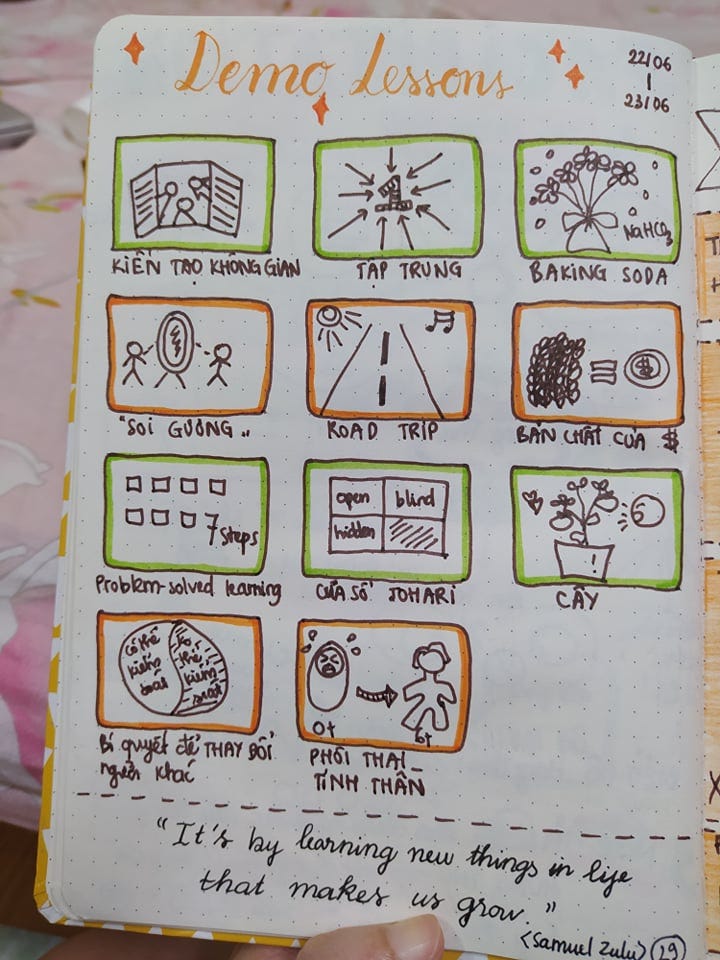 Demo Lessons
22/06
|
23/06
KIẾN TẠO KHÔNG GIAN
1
TẬP TRUNG
NaHCO3
BAKING SODA
"SOI GƯƠNG"
ROAD TRIP
= $
BẢN CHẤT CỦA $
7 steps
Problem-solved learning
open blind
hidden
CỬA SỔ JOHARI
CÂY
có thể
kiểm
soát
ko
thể
kiểm
soát
Bí quyết để THAY ĐỔI
người khác
0t
6t
PHÔI THAI
TINH THẦN
"It's by learning new things in life
that makes us grow."
<Samuel Zulu>
29